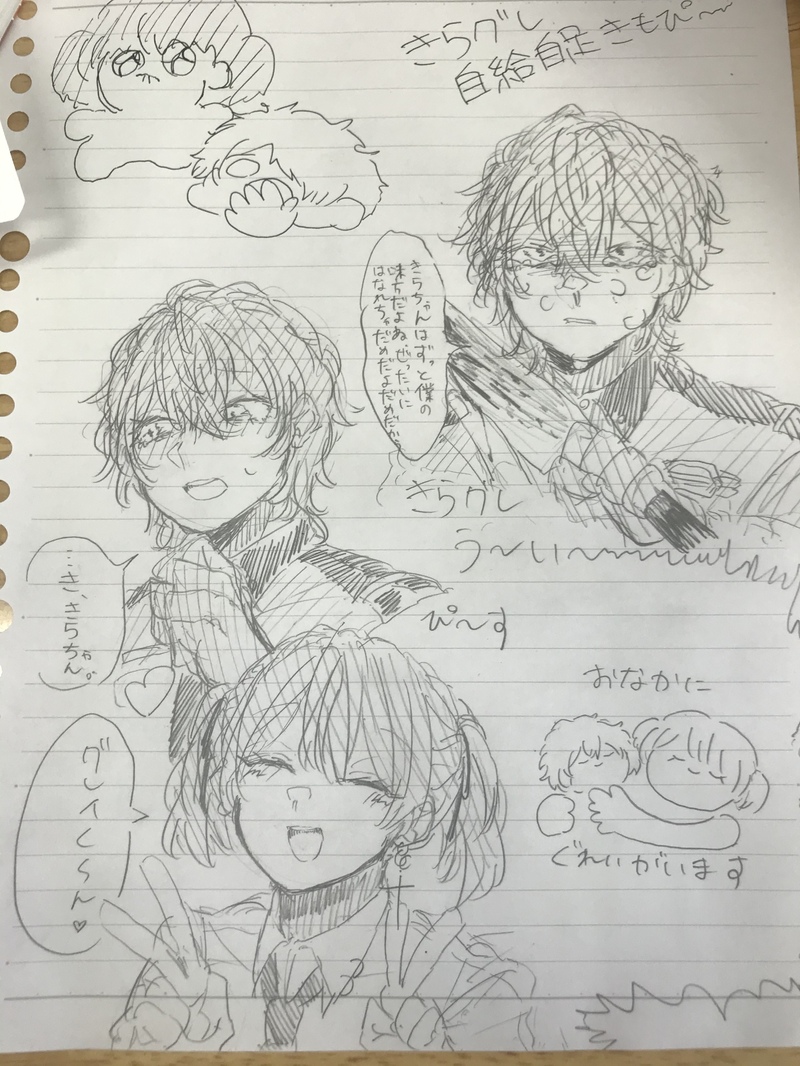 きらグレ
自給自足きもぴ〜
きらちゃんはずっと僕の
味方だよね、ぜったいに
はなれちゃだめだよだめだから
きらグレ
う〜い〜
ぴ〜す
…き、きらちゃん。
グレイく〜ん♡
おなかに
ぐれいがいます